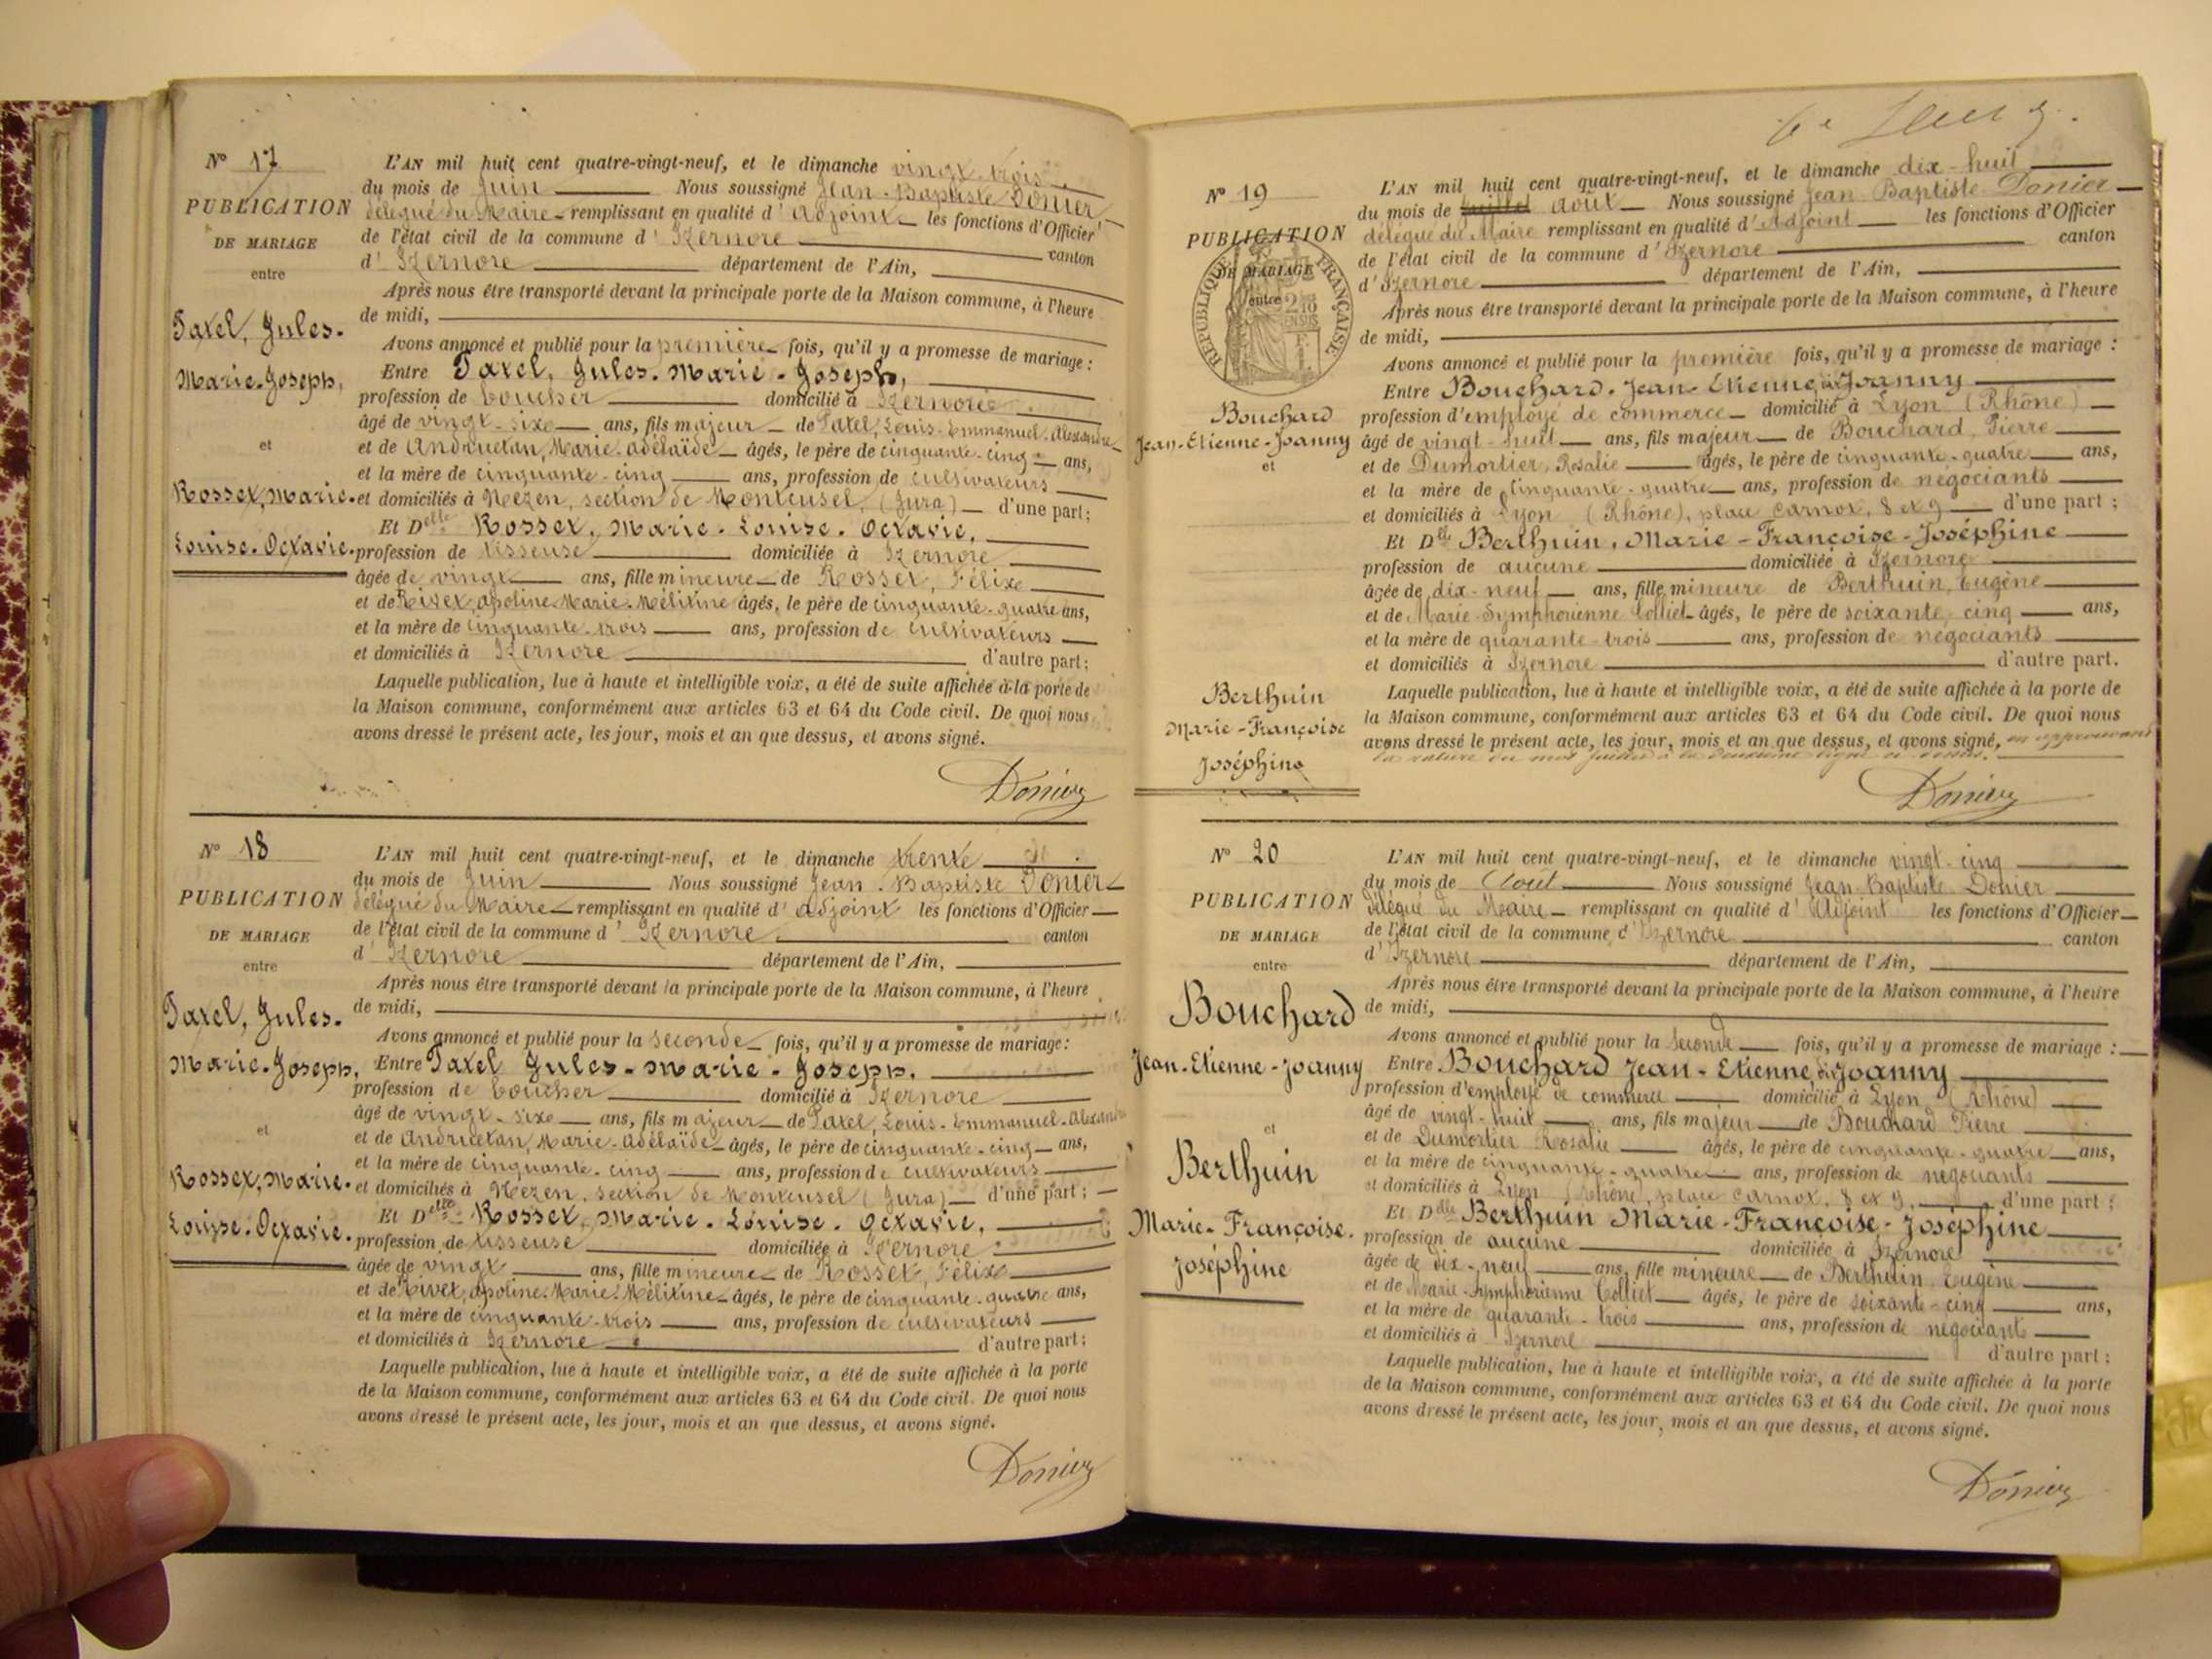 Nº 17
PUBLICATION
DE MARIAGE
entre
Patel, Jules-
Marie-Joseph,
et
Rosset, Marie-
Louise-Octavie.
L'AN mil huit cent quatre-vingt-neuf, et le dimanche vingt-trois
du mois de Juin Nous soussigné Jean-Baptiste Donier
délégué du Maire remplissant en qualité d'Adjoint les fonctions d'Officier
de l'état civil de la commune d'Izernore canton
d'Izernore département de l'Ain,
Après nous être transporté devant la principale porte de la Maison commune, à l'heure
de midi,
Avons annoncé et publié pour la première fois, qu'il y a promesse de mariage :
Entre Patel, Jules-Marie-Joseph,
profession de boucher domicilié à Izernore
âgé de vingt-six ans, fils majeur de Patel, Louis-Emmanuel-Alexandre
et de Andruetan, Marie-Adélaïde âgés, le père de cinquante-cinq ans,
et la mère de cinquante-cinq ans, profession de cultivateurs
et domiciliés à section de Montcusel (Jura) d'une part ;
Et Delle Rosset, Marie-Louise-Octavie,
profession de tisseuse domiciliée à Izernore
âgée de vingt ans, fille mineure de Rosset, Félix
et de Rivet, Apoline-Marie-Mélitine âgés, le père de cinquante-quatre ans,
et la mère de cinquante-trois ans, profession de cultivateurs
et domiciliés à Izernore d'autre part ;
Laquelle publication, lue à haute et intelligible voix, a été de suite affichée à la porte de
la Maison commune, conformément aux articles 63 et 64 du Code civil. De quoi nous
avons dressé le présent acte, les jour, mois et an que dessus, et avons signé.
Donier
Nº 18
PUBLICATION
DE MARIAGE
entre
Patel, Jules-
Marie-Joseph,
et
Rosset, Marie-
Louise-Octavie.
L'AN mil huit cent quatre-vingt-neuf, et le dimanche trente
du mois de Juin Nous soussigné Jean-Baptiste Donier
délégué du Maire remplissant en qualité d'adjoint les fonctions d'Officier
de l'état civil de la commune d'Izernore canton
d'Izernore département de l'Ain,
Après nous être transporté devant la principale porte de la Maison commune, à l'heure
de midi,
Avons annoncé et publié pour la seconde fois, qu'il y a promesse de mariage :
Entre Patel Jules-Marie-Joseph,
profession de boucher domicilié à Izernore
âgé de vingt-six ans, fils majeur de Patel, Louis-Emmanuel-Alexandre
et de Andruetan, Marie-Adélaïde âgés, le père de cinquante-cinq ans,
et la mère de cinquante-cinq ans, profession de cultivateurs
et domiciliés à section de Montcusel (Jura) d'une part ;
Et Delle Rosset, Marie-Louise-Octavie,
profession de tisseuse domiciliée à Izernore
âgée de vingt ans, fille mineure de Rosset, Félix
et de Rivet, Apoline-Marie-Mélitine âgés, le père de cinquante-quatre ans,
et la mère de cinquante-trois ans, profession de cultivateurs
et domiciliés à Izernore d'autre part ;
Laquelle publication, lue à haute et intelligible voix, a été de suite affichée à la porte
de la Maison commune, conformément aux articles 63 et 64 du Code civil. De quoi nous
avons dressé le présent acte, les jour, mois et an que dessus, et avons signé.
Donier
Nº 19
PUBLICATION
DE MARIAGE
entre
RÉPUBLIQUE FRANÇAISE
Bouchard
Jean-Etienne-Joanny
et
Berthuin
Marie-Françoise
Joséphine
L'AN mil huit cent quatre-vingt-neuf, et le dimanche dix-huit
du mois de juillet Août Nous soussigné Jean-Baptiste Donier
délégué du Maire remplissant en qualité d'Adjoint les fonctions d'Officier
de l'état civil de la commune d'Izernore canton
d'Izernore département de l'Ain,
Après nous être transporté devant la principale porte de la Maison commune, à l'heure
de midi,
Avons annoncé et publié pour la première fois, qu'il y a promesse de mariage :
Entre Bouchard. Jean-Etienne dit Joanny
profession d'employé de commerce domicilié à Lyon (Rhône)
âgé de vingt-huit ans, fils majeur de Bouchard, Pierre
et de Dumortier, Rosalie âgés, le père de cinquante-quatre ans,
et la mère de cinquante-quatre ans, profession de négociants
et domiciliés à Lyon (Rhône), place Carnot, 8 et 9 d'une part ;
Et Dlle Berthuin, Marie-Françoise-Joséphine
profession de aucune domiciliée à Izernore
âgée de dix-neuf ans, fille mineure de Berthuin, Eugène
et de Marie-Symphorienne Colliet âgés, le père de soixante-cinq ans,
et la mère de quarante-trois ans, profession de négociants
et domiciliés à Izernore d'autre part.
Laquelle publication, lue à haute et intelligible voix, a été de suite affichée à la porte de
la Maison commune, conformément aux articles 63 et 64 du Code civil. De quoi nous
avons dressé le présent acte, les jour, mois et an que dessus, et avons signé, en approuvant
la rature du mot juillet à la deuxième ligne ci-dessus.
Donier
Nº 20
PUBLICATION
DE MARIAGE
entre
Bouchard
Jean-Etienne-Joanny
et
Berthuin
Marie-Françoise-
Joséphine
L'AN mil huit cent quatre-vingt-neuf, et le dimanche vingt-cinq
du mois de Août Nous soussigné Jean-Baptiste Donier
délégué du Maire remplissant en qualité d'Adjoint les fonctions d'Officier
de l'état civil de la commune d'Izernore canton
d'Izernore département de l'Ain,
Après nous être transporté devant la principale porte de la Maison commune, à l'heure
de midi,
Avons annoncé et publié pour la seconde fois, qu'il y a promesse de mariage :
Entre Bouchard Jean-Etienne dit Joanny
profession d'employé de commerce domicilié à Lyon (Rhône)
âgé de vingt-huit ans, fils majeur de Bouchard Pierre
et de Dumortier Rosalie âgés, le père de cinquante-quatre ans,
et la mère de cinquante-quatre ans, profession de négociants
et domiciliés à Lyon (Rhône), place Carnot, 8 et 9, d'une part ;
Et Dlle Berthuin Marie-Françoise-Joséphine
profession de aucune domiciliée à Izernore
âgée de dix-neuf ans, fille mineure de Berthuin, Eugène
et de Marie-Symphorienne Colliet âgés, le père de soixante-cinq ans,
et la mère de quarante-trois ans, profession de négociants
et domiciliés à Izernore d'autre part ;
Laquelle publication, lue à haute et intelligible voix, a été de suite affichée à la porte
de la Maison commune, conformément aux articles 63 et 64 du Code civil. De quoi nous
avons dressé le présent acte, les jour, mois et an que dessus, et avons signé.
Donier